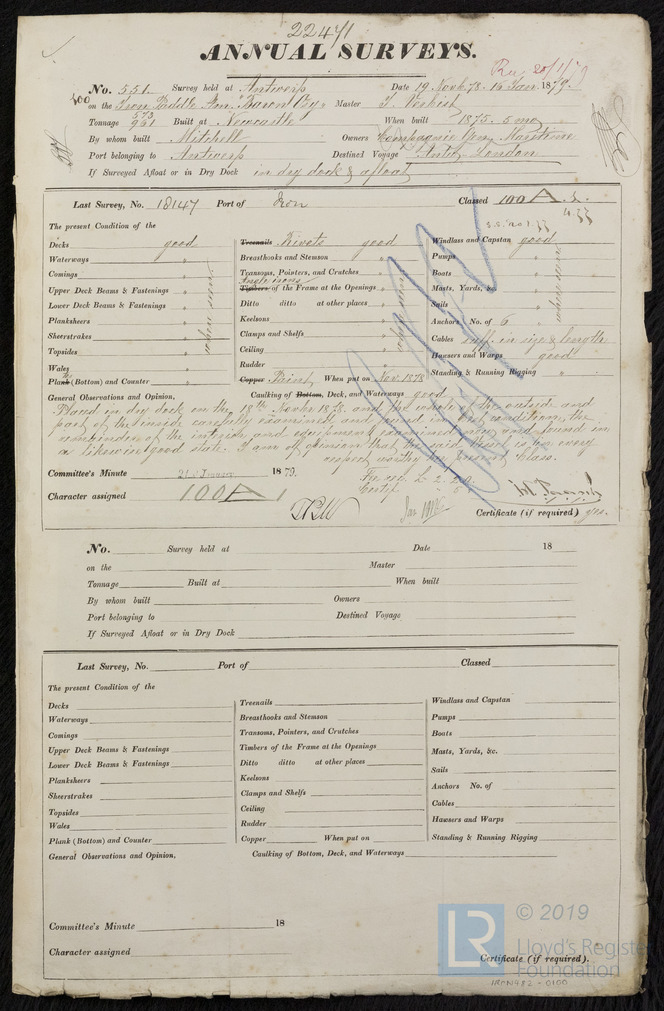 22471
ANNUAL SURVEYS.
Rec 20/1/79
No. 551 Survey held at Antwerp Date 19 Novbr 78. 16 Jan 1879.
on the Iron Paddle Str. "Baron Osy" Master
573
Tonnage 961 Built at Newcastle When built 1875. 5 mo
By whom built Mitchell Owners Compagnie Maritime
Port belonging to Antwerp Destined Voyage London
If Surveyed Afloat or in Dry Dock in dry dock & afloat
Last Survey, No. 18147 Port of Iron Classed 100 A. 1.
The present Condition of the
Decks good
Waterways "
Comings "
Upper Deck Beams & Fastenings "
Lower Deck Beams & Fastenings "
Planksheers "
Sheerstrakes "
Topsides "
Wales "
Plank (Bottom) and Counter "
Treenails Rivets good
Breasthooks and Stemson "
Transoms, Pointers, and Crutches "
Angle irons
Timbers of the Frame at the Openings "
Ditto ditto at other places "
Keelsons "
Clamps and Shelfs "
Ceiling "
Rudder "
Copper Paint When put on Nov. 1878
Windlass and Capstan good
Pumps "
Boats "
Masts, Yards, &c. "
Sails "
Anchors No. of 6
Cables suff. in size & length
Hawsers and Warps good
Standing & Running Rigging "
General Observations and Opinion, Caulking of Bottom, Deck, and Waterways good
Placed in dry dock on the 18th Novbr 1878. and the whole of the outside and
part of the inside carefully examined and found in good condition, the
remainder of the interior and equipment examined and found in
a likewise good state. I am of opinion that the said vessel is in every
respect worthy her present Class.
Committee's Minute 21st January 1879.
Character assigned 100 A 1
Certificate (if required) yes.
No. Survey held at Date 18
on the Master
Tonnage Built at When built
By whom built Owners
Port belonging to Destined Voyage
If Surveyed Afloat or in Dry Dock
Last Survey, No. Port of Classed
The present Condition of the
Decks
Waterways
Comings
Upper Deck Beams & Fastenings
Lower Deck Beams & Fastenings
Planksheers
Sheerstrakes
Topsides
Wales
Plank (Bottom) and Counter
Treenails
Breasthooks and Stemson
Transoms, Pointers, and Crutches
Timbers of the Frame at the Openings
Ditto ditto at other places
Keelsons
Clamps and Shelfs
Ceiling
Rudder
Copper When put on
Windlass and Capstan
Pumps
Boats
Masts, Yards, &c.
Sails
Anchors No. of
Cables
Hawsers and Warps
Standing & Running Rigging
General Observations and Opinion, Caulking of Bottom, Deck, and Waterways
Committee's Minute 18
Character assigned
Certificate (if required).
LR © 2019
Lloyd's Register
Foundation
IRON482-0100